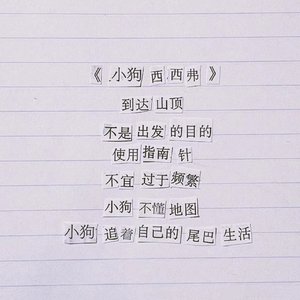 《小狗西西弗》
到达山顶
不是出发的目的
使用指南针
不宜过于频繁
小狗不懂地图
小狗追着自己的尾巴生活